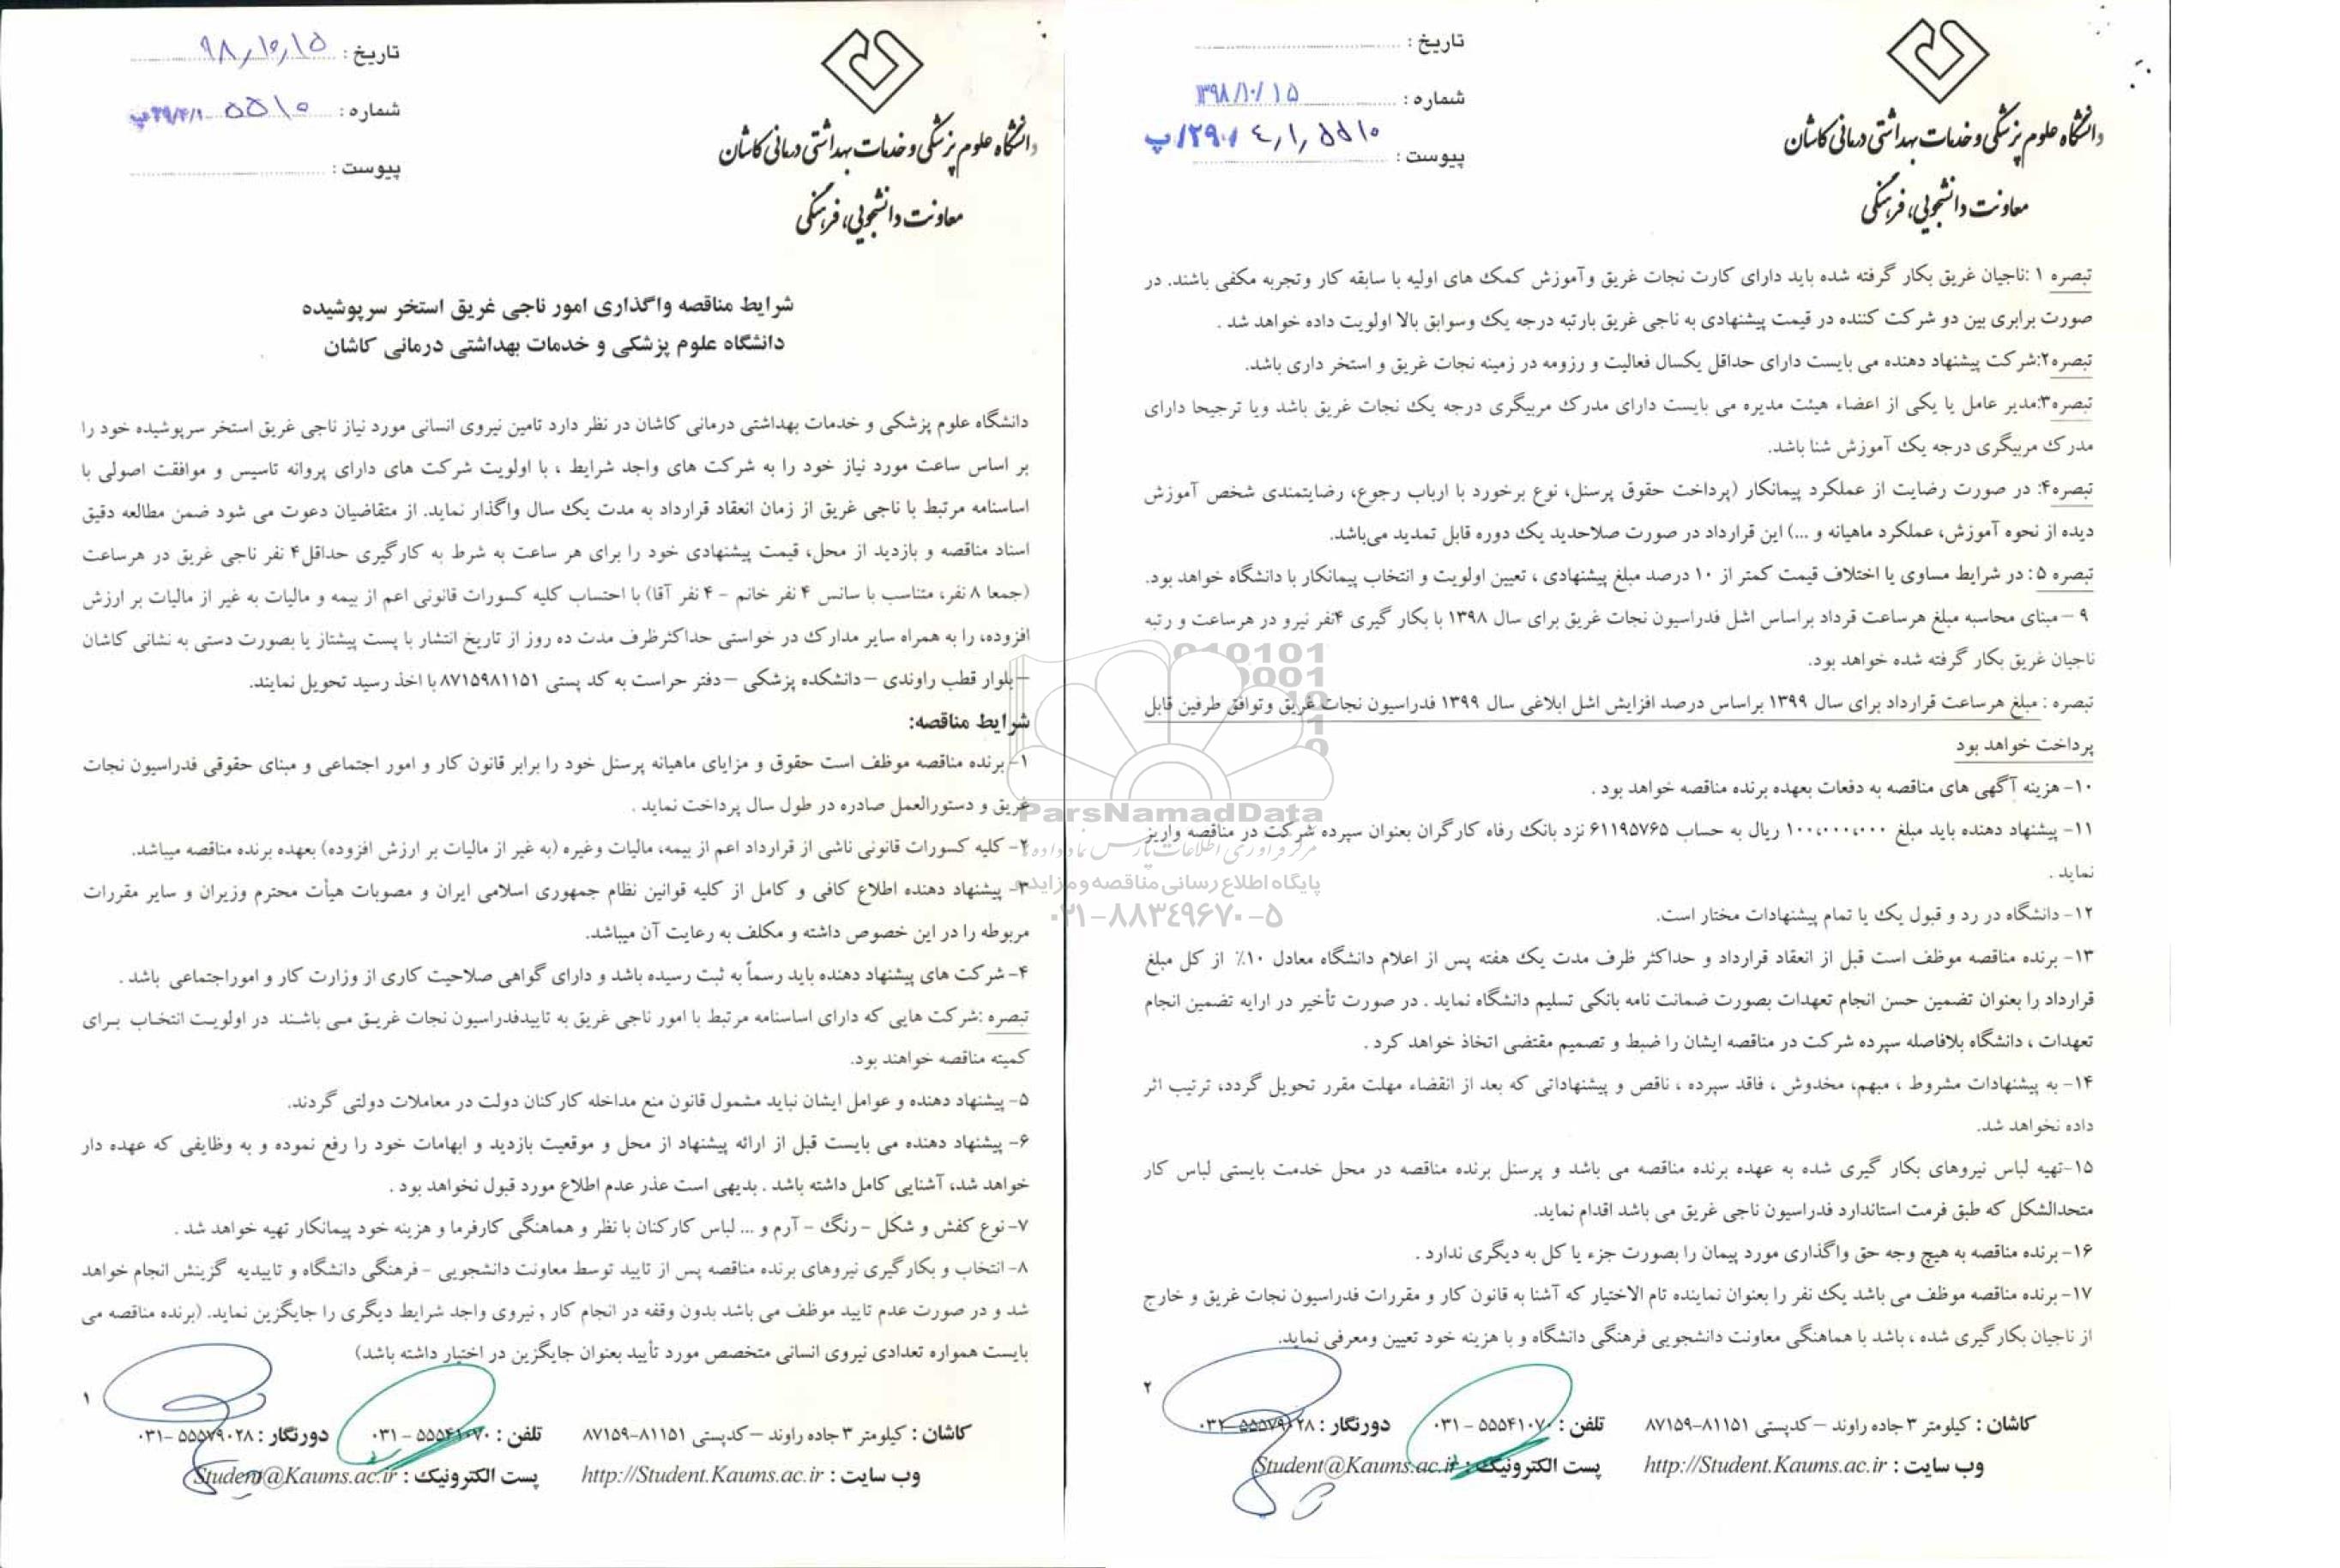 تاریخ : ۹۸,۱۰,۱۵
شماره : ۲۹/۴/۱/۵۵۱۰/پ
پیوست :
دانشگاه علوم پزشکی و خدمات بهداشتی درمانی کاشان
معاونت دانشجویی، فرهنگی
شرایط مناقصه واگذاری امور ناجی غریق استخر سرپوشیده
دانشگاه علوم پزشکی و خدمات بهداشتی درمانی کاشان
دانشگاه علوم پزشکی و خدمات بهداشتی درمانی کاشان در نظر دارد تامین نیروی انسانی مورد نیاز ناجی غریق استخر سرپوشیده خود را
بر اساس ساعت مورد نیاز خود را به شرکت های واجد شرایط ، با اولویت شرکت های دارای پروانه تاسیس و موافقت اصولی با
اساسنامه مرتبط با ناجی غریق از زمان انعقاد قرارداد به مدت یک سال واگذار نماید. از متقاضیان دعوت می شود ضمن مطالعه دقیق
اسناد مناقصه و بازدید از محل، قیمت پیشنهادی خود را برای هر ساعت به شرط به کارگیری حداقل۴ نفر ناجی غریق در هرساعت
(جمعا ۸ نفر، متناسب با سانس ۴ نفر خانم - ۴ نفر آقا) با احتساب کلیه کسورات قانونی اعم از بیمه و مالیات به غیر از مالیات بر ارزش
افزوده، را به همراه سایر مدارک در خواستی حداکثرظرف مدت ده روز از تاریخ انتشار با پست پیشتاز یا بصورت دستی به نشانی کاشان
–بلوار قطب راوندی –دانشکده پزشکی –دفتر حراست به کد پستی ۸۷۱۵۹۸۱۱۵۱ با اخذ رسید تحویل نمایند.
شرایط مناقصه:
۱- برنده مناقصه موظف است حقوق و مزایای ماهیانه پرسنل خود را برابر قانون کار و امور اجتماعی و مبنای حقوقی فدراسیون نجات
غریق و دستورالعمل صادره در طول سال پرداخت نماید .
۲- کلیه کسورات قانونی ناشی از قرارداد اعم از بیمه، مالیات وغیره (به غیر از مالیات بر ارزش افزوده) بعهده برنده مناقصه میباشد.
۳- پیشنهاد دهنده اطلاع کافی و کامل از کلیه قوانین نظام جمهوری اسلامی ایران و مصوبات هیأت محترم وزیران و سایر مقررات
مربوطه را در این خصوص داشته و مکلف به رعایت آن میباشد.
۴- شرکت های پیشنهاد دهنده باید رسماً به ثبت رسیده باشد و دارای گواهی صلاحیت کاری از وزارت کار و اموراجتماعی باشد .
تبصره :شرکت هایی که دارای اساسنامه مرتبط با امور ناجی غریق به تاییدفدراسیون نجات غریق می باشند در اولویت انتخاب برای
کمیته مناقصه خواهند بود.
۵- پیشنهاد دهنده و عوامل ایشان نباید مشمول قانون منع مداخله کارکنان دولت در معاملات دولتی گردند.
۶- پیشنهاد دهنده می بایست قبل از ارائه پیشنهاد از محل و موقعیت بازدید و ابهامات خود را رفع نموده و به وظایفی که عهده دار
خواهد شد، آشنایی کامل داشته باشد . بدیهی است عذر عدم اطلاع مورد قبول نخواهد بود .
۷- نوع کفش و شکل – رنگ – آرم و ... لباس کارکنان با نظر و هماهنگی کارفرما و هزینه خود پیمانکار تهیه خواهد شد .
۸- انتخاب و بکارگیری نیروهای برنده مناقصه پس از تایید توسط معاونت دانشجویی - فرهنگی دانشگاه و تاییدیه گزینش انجام خواهد
شد و در صورت عدم تایید موظف می باشد بدون وقفه در انجام کار , نیروی واجد شرایط دیگری را جایگزین نماید. (برنده مناقصه می
بایست همواره تعدادی نیروی انسانی متخصص مورد تأیید بعنوان جایگزین در اختیار داشته باشد)
۱
کاشان : کیلومتر ۳ جاده راوند – کدپستی ۸۱۱۵۱–۸۷۱۵۹ تلفن : ۵۵۵۴۱۰۷۰ - ۰۳۱ دورنگار : ۵۵۵۷۹۰۲۸ -۰۳۱
وب سایت : http://Student.Kaums.ac.ir پست الکترونیک : Student@Kaums.ac.ir
تاریخ :
شماره : ۱۳۹۸/۱۰/۱۵
۲۹۰/۴/۱/۵۵۱۰/پ
پیوست :
دانشگاه علوم پزشکی و خدمات بهداشتی درمانی کاشان
معاونت دانشجویی، فرهنگی
تبصره ۱ :ناجیان غریق بکار گرفته شده باید دارای کارت نجات غریق وآموزش کمک های اولیه با سابقه کار وتجربه مکفی باشند. در
صورت برابری بین دو شرکت کننده در قیمت پیشنهادی به ناجی غریق بارتبه درجه یک وسوابق بالا اولویت داده خواهد شد .
تبصره۲:شرکت پیشنهاد دهنده می بایست دارای حداقل یکسال فعالیت و رزومه در زمینه نجات غریق و استخر داری باشد.
تبصره۳:مدیر عامل یا یکی از اعضاء هیئت مدیره می بایست دارای مدرک مربیگری درجه یک نجات غریق باشد ویا ترجیحا دارای
مدرک مربیگری درجه یک آموزش شنا باشد.
تبصره۴: در صورت رضایت از عملکرد پیمانکار (پرداخت حقوق پرسنل، نوع برخورد با ارباب رجوع، رضایتمندی شخص آموزش
دیده از نحوه آموزش، عملکرد ماهیانه و ...) این قرارداد در صورت صلاحدید یک دوره قابل تمدید می‌باشد.
تبصره ۵: در شرایط مساوی یا اختلاف قیمت کمتر از ۱۰ درصد مبلغ پیشنهادی ، تعیین اولویت و انتخاب پیمانکار با دانشگاه خواهد بود.
۹ – مبنای محاسبه مبلغ هرساعت قرداد براساس اشل فدراسیون نجات غریق برای سال ۱۳۹۸ با بکار گیری ۴نفر نیرو در هرساعت و رتبه
ناجیان غریق بکار گرفته شده خواهد بود.
تبصره : مبلغ هرساعت قرارداد برای سال ۱۳۹۹ براساس درصد افزایش اشل ابلاغی سال ۱۳۹۹ فدراسیون نجات غریق وتوافق طرفین قابل
پرداخت خواهد بود
۱۰- هزینه آگهی های مناقصه به دفعات بعهده برنده مناقصه خواهد بود .
۱۱- پیشنهاد دهنده باید مبلغ ۱۰۰،۰۰۰،۰۰۰ ریال به حساب ۶۱۱۹۵۷۶۵ نزد بانک رفاه کارگران بعنوان سپرده شرکت در مناقصه واریز
نماید .
۱۲- دانشگاه در رد و قبول یک یا تمام پیشنهادات مختار است.
۱۳- برنده مناقصه موظف است قبل از انعقاد قرارداد و حداکثر ظرف مدت یک هفته پس از اعلام دانشگاه معادل ۱۰٪ از کل مبلغ
قرارداد را بعنوان تضمین حسن انجام تعهدات بصورت ضمانت نامه بانکی تسلیم دانشگاه نماید . در صورت تأخیر در ارایه تضمین انجام
تعهدات ، دانشگاه بلافاصله سپرده شرکت در مناقصه ایشان را ضبط و تصمیم مقتضی اتخاذ خواهد کرد .
۱۴- به پیشنهادات مشروط ، مبهم، مخدوش ، فاقد سپرده ، ناقص و پیشنهاداتی که بعد از انقضاء مهلت مقرر تحویل گردد، ترتیب اثر
داده نخواهد شد.
۱۵-تهیه لباس نیروهای بکار گیری شده به عهده برنده مناقصه می باشد و پرسنل برنده مناقصه در محل خدمت بایستی لباس کار
متحدالشکل که طبق فرمت استاندارد فدراسیون ناجی غریق می باشد اقدام نماید.
۱۶- برنده مناقصه به هیچ وجه حق واگذاری مورد پیمان را بصورت جزء یا کل به دیگری ندارد .
۱۷- برنده مناقصه موظف می باشد یک نفر را بعنوان نماینده تام الاختیار که آشنا به قانون کار و مقررات فدراسیون نجات غریق و خارج
از ناجیان بکارگیری شده ، باشد با هماهنگی معاونت دانشجویی فرهنگی دانشگاه و با هزینه خود تعیین ومعرفی نماید.
۲
کاشان : کیلومتر ۳ جاده راوند – کدپستی ۸۱۱۵۱–۸۷۱۵۹ تلفن : ۵۵۵۴۱۰۷۰ - ۰۳۱ دورنگار : ۵۵۵۷۹۰۲۸ -۰۳۱
وب سایت : http://Student.Kaums.ac.ir پست الکترونیک : Student@Kaums.ac.ir
ParsNamadData
مرکز فرآوری اطلاعات پارس نماد داده ها
پایگاه اطلاع رسانی مناقصه و مزایده
۰۲۱-۸۸۳۴۹۶۷۰-۵